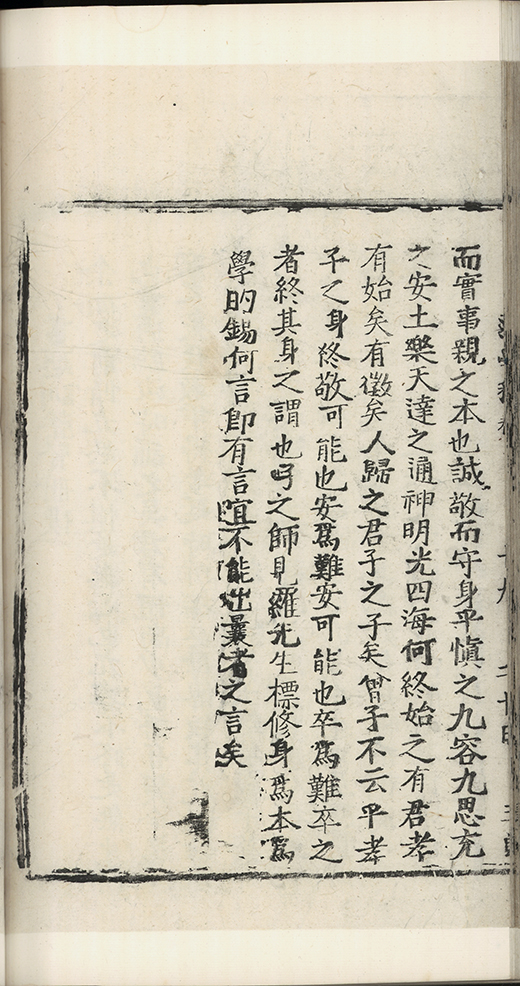 而實事親之本也誠敬而守身乎慎之九容九思充
之安土樂天達之通神明光四海何終始之有君孝
有始矣有徵矣人歸之君子之子矣曾子不云乎孝
子之身終敬可能也安爲難安可能也卒爲難卒之
者終其身之謂也弓之師見羅先生標修身爲本爲
學的錫何言即有言詎不能出曩者之言矣